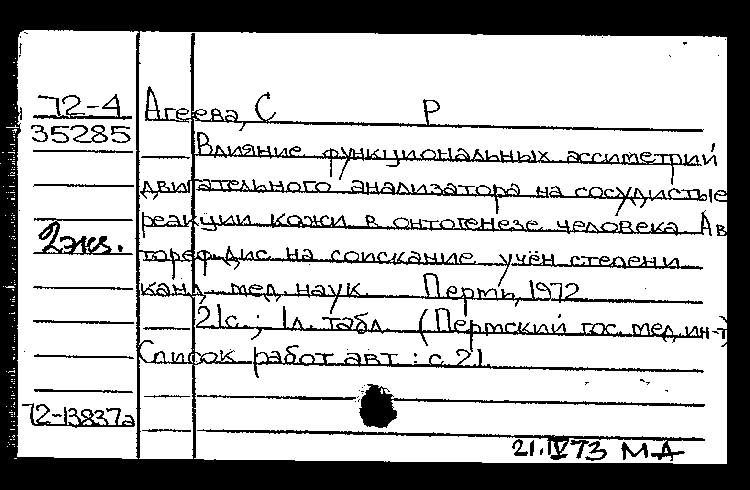 72-4
35285
2экз.
72-13837а
Агеева, С Р
Влияние функциональных ассиметрий
двигательного анализатора на сосудистые
реакции кожи в онтогенезе человека Ав
тореф дис на соискание учён степени
канд. мед. наук. Пермь, 1972
21с.; 1л. табл (Пермский гос. мед. ин-т)
Список работ авт : с. 21.
21.IV 73 М.А